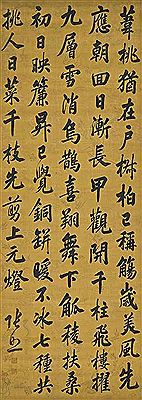 葦桃猶在戶椒柏已稱觴歲美風先
應朝回日漸長甲觀開千柱飛樓擢
九層雪消烏鵲喜翔舞下觚稜扶桑
初日映簾昇已覺銅缾暖不冰七種共
挑人日菜千枝先剪上元燈